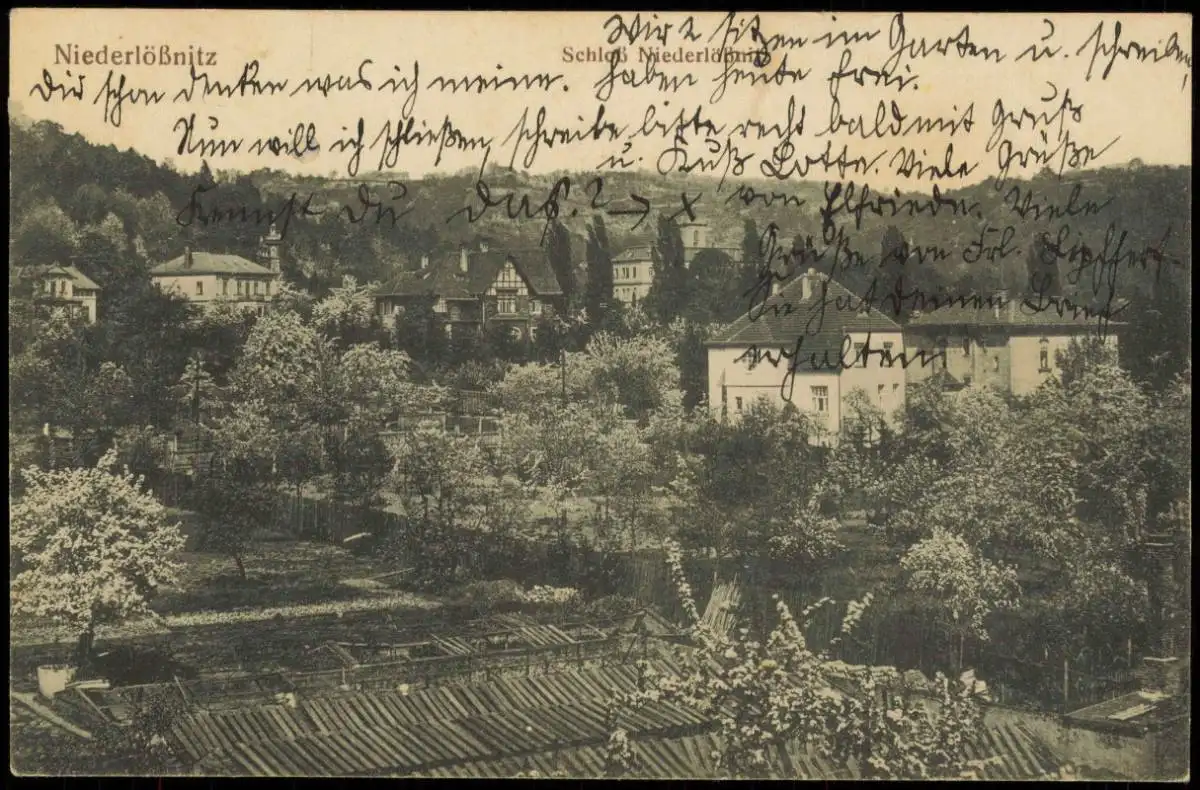 Niederlößnitz
Schloß Niederlößnitz
Wir 2 sitzen im Garten u. schreiben,
Dir schon denken was ich meine. haben heute frei.
Nun will ich schließen, schreibe bitte recht bald mit Gruß
u. Kuß Lotte. Viele Grüße
Kennst Du das? → x von Elfriede. Viele
Grüße von Frl. Lipffert.
Sie hat Deinen Brief
erhalten